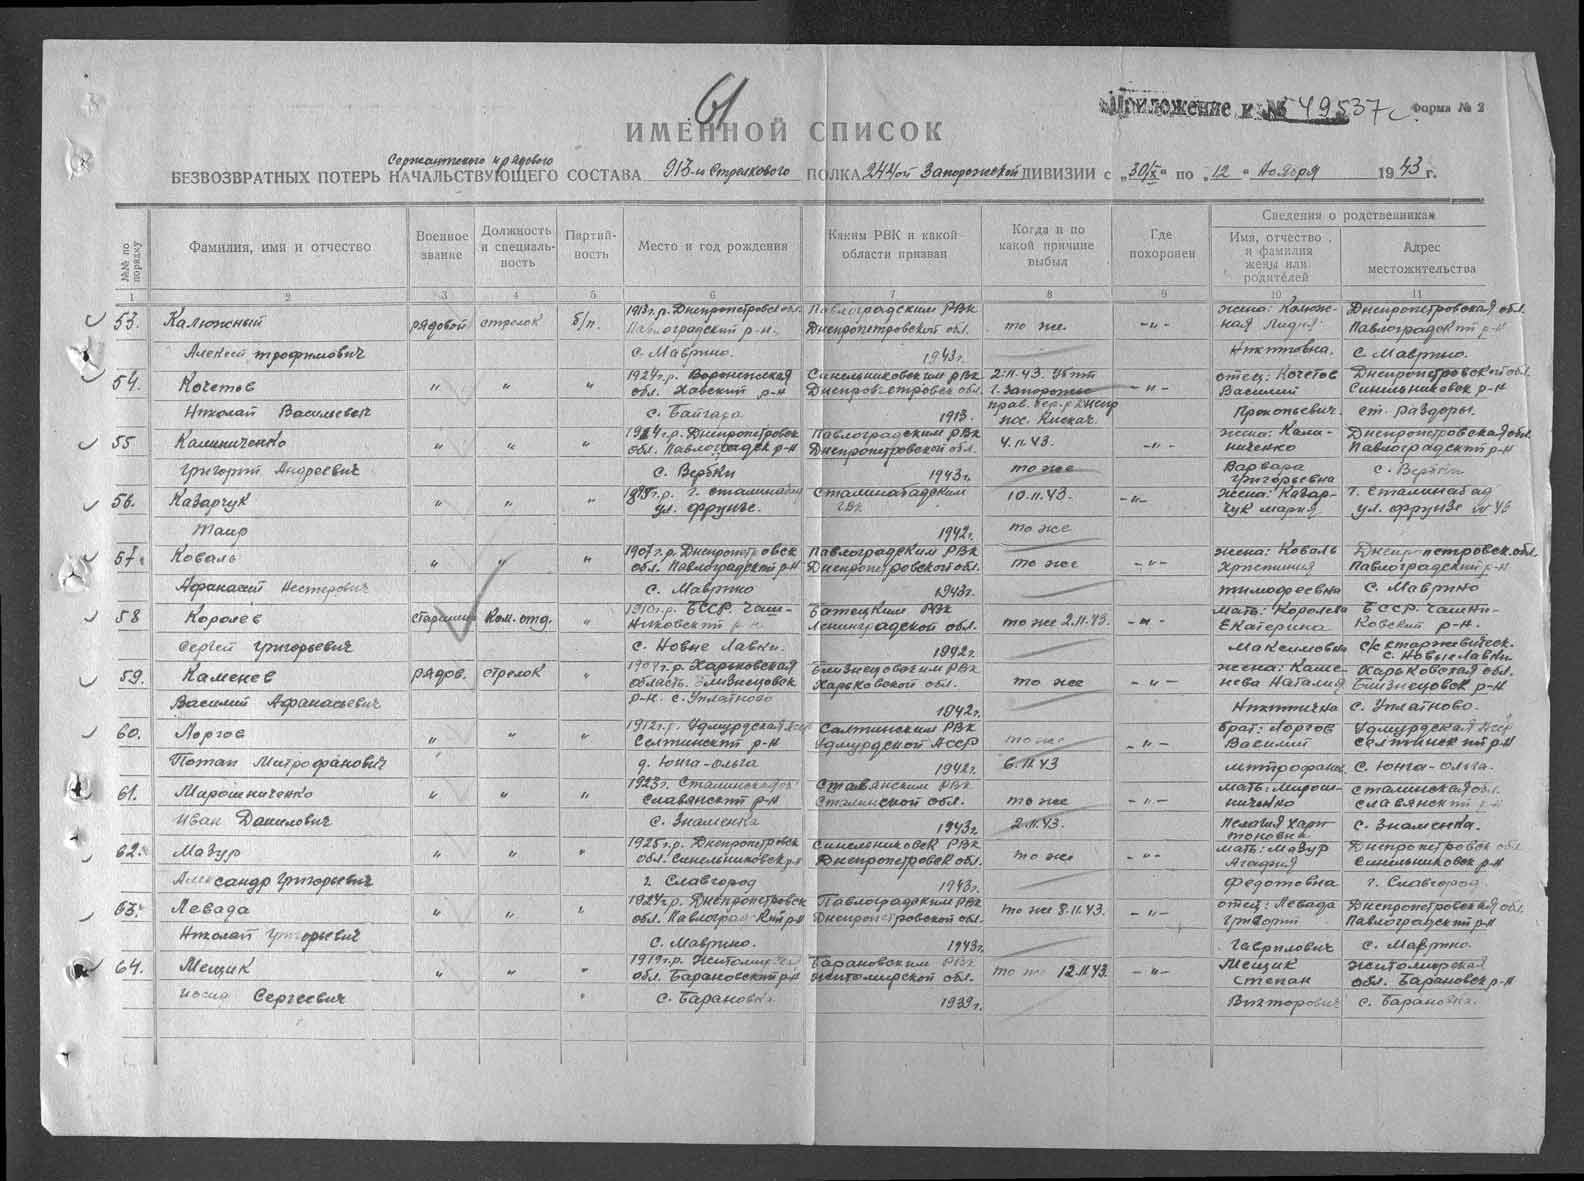 61
Приложение к № 49537с. Форма № 2
ИМЕННОЙ СПИСОК
Сержантского и рядового
БЕЗВОЗВРАТНЫХ ПОТЕРЬ НАЧАЛЬСТВУЮЩЕГО СОСТАВА 913-го Стрелкового ПОЛКА 244ой Запорожской ДИВИЗИИ с „30/X“ по „12“ Ноября 1943 г.
№№ по порядку
Фамилия, имя и отчество
Военное звание
Должность и специальность
Партийность
Место и год рождения
Каким РВК и какой области призван
Когда и по какой причине выбыл
Где похоронен
Сведения о родственниках
Имя, отчество и фамилия жены или родителей
Адрес местожительства
1 2 3 4 5 6 7 8 9 10 11
1913г.р. Днепропетровск обл. Павлоградским РВК жена: Калюж- Днепропетровская обл.
53. Калюжный рядовой стрелок б/п. Павлоградский р-н. Днепропетровской обл. то же -"- ная Лидия Павлоградский р-н
Алексей Трофимович с. Маврино. 1943г. Никитовна. с. Маврино.
1924г.р. Воронежская Синельниковским РВК 2.11.43. Убит отец: Кочетов Днепропетровской обл.
54. Кочетов " " " обл. Хавский р-н Днепропетровск обл. г. Запорожье -"- Василий Синельниковск р-н
Николай Васильевич с. Байгара 1943. прав. бер. р. Днепр пос. Кискач. Прокопьевич. ст. Раздоры.
1924г.р. Днепропетровск Павлоградским РВК жена: Кали- Днепропетровская обл.
55 Калиниченко " " " обл. Павлоградск р-н Днепропетровской обл. 4.11.43. -"- ниченко Павлоградский р-н
Григорий Андреевич с. Вербки 1943г. то же Варвара Григорьевна с. Вербки
г. Сталинабад Сталинабадским 10.11.43. жена: Казар- г. Сталинабад
56. Казарчук " " " ул. Фрунзе. ГВК -"- чук Мария ул. Фрунзе № 43
Таир 1942г. то же
1907г.р. Днепропетровск Павлоградским РВК жена: Коваль Днепропетровск. обл.
57. Коваль " " " обл. Павлоградский р-н Днепропетровской обл. то же -"- Христиния Павлоградский р-н
Афанасий Нестерович с. Маврино 1943г. Тимофеевна с. Маврино
1910г.р. БССР. Чаш- Батецким РВК мать: Королева БССР. Чашни-
58 Королев старшина Ком. отд. " никовский р-н Ленинградской обл. то же 2.11.43. -"- Екатерина ковский р-н.
Сергей Григорьевич с. Новые Лавки. 1942г. Максимовна с. Новые Лавки
Харьковская Близнецовским РВК жена: Каме- Харьковская обл.
59. Каменев рядов. стрелок " область. Близнецовск Харьковской обл. то же -"- нева Наталия Близнецовск р-н
Василий Афанасьевич р-н. с. Уплатново 1942г. Никитична с. Уплатново.
1912г.р. Удмурдская Асср Салтинским РВК брат: Лоргов Удмурдская Асср
60. Лоргов " " " Селтинский р-н Удмурдской АССР то же -"- Василий Селтинский р-н
Потап Митрофанович д. Юнга-Ольга 1942г. 6.11.43 Митрофанов. с. Юнга-Ольга.
1923г. Сталинская обл. Славянским РВК мать: Мирош- Сталинская обл.
61. Мирошниченко " " " Славянский р-н Сталинской обл. то же -"- ниченко Славянский р-н
Иван Данилович с. Знаменка 1943г. 2.11.43. Пелагия Харитоновна с. Знаменка.
1925г.р. Днепропетровск Синельниковск РВК мать: Мазур Днепропетровск обл.
62. Мазур " " " обл. Синельниковск р-н Днепропетровск обл. то же -"- Агафия Синельниковск р-н
Александр Григорьевич г. Славгород 1943г. Федотовна г. Славгород.
1924г.р. Днепропетровск Павлоградским РВК отец: Левада Днепропетровская обл.
63. Левада " " " обл. Павлоградский р-н Днепропетровской обл. то же 8.11.43. -"- Григорий Павлоградский р-н
Николай Григорьевич с. Маврино. 1943г. Гаврилович с. Маврино.
1919г.р. Житомирская Барановским РВК Мещик Житомирская
64. Мещик " " " обл. Барановский р-н Житомирской обл. то же 12.11.43. -"- Степан обл. Барановск р-н
Иосиф Сергеевич " с. Барановка 1939г. Викторович с. Барановка.